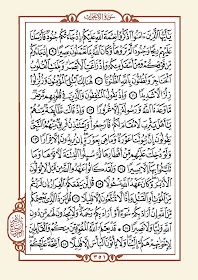 سورة الأحزاب
يَٰٓأَيُّهَا ٱلَّذِينَ ءَامَنُوا۟ ٱذْكُرُوا۟ نِعْمَةَ ٱللَّهِ عَلَيْكُمْ إِذْ جَآءَتْكُمْ جُنُودٌ فَأَرْسَلْنَا
عَلَيْهِمْ رِيحًا وَجُنُودًا لَّمْ تَرَوْهَا وَكَانَ ٱللَّهُ بِمَا تَعْمَلُونَ بَصِيرًا إِذْ جَآءُوكُم
مِّن فَوْقِكُمْ وَمِنْ أَسْفَلَ مِنكُمْ وَإِذْ زَاغَتِ ٱلْأَبْصَٰرُ وَبَلَغَتِ ٱلْقُلُوبُ
ٱلْحَنَاجِرَ وَتَظُنُّونَ بِٱللَّهِ ٱلظُّنُونَا۠ هُنَالِكَ ٱبْتُلِىَ ٱلْمُؤْمِنُونَ وَزُلْزِلُوا۟
زِلْزَالًا شَدِيدًا وَإِذْ يَقُولُ ٱلْمُنَٰفِقُونَ وَٱلَّذِينَ فِى قُلُوبِهِم مَّرَضٌ
مَّا وَعَدَنَا ٱللَّهُ وَرَسُولُهُۥٓ إِلَّا غُرُورًا وَإِذْ قَالَت طَّآئِفَةٌ مِّنْهُمْ
يَٰٓأَهْلَ يَثْرِبَ لَا مُقَامَ لَكُمْ فَٱرْجِعُوا۟ وَيَسْتَـْٔذِنُ فَرِيقٌ مِّنْهُمُ ٱلنَّبِىَّ
يَقُولُونَ إِنَّ بُيُوتَنَا عَوْرَةٌ وَمَا هِىَ بِعَوْرَةٍ إِن يُرِيدُونَ إِلَّا فِرَارًا
وَلَوْ دُخِلَتْ عَلَيْهِم مِّنْ أَقْطَارِهَا ثُمَّ سُئِلُوا۟ ٱلْفِتْنَةَ لَءَاتَوْهَا وَمَا
تَلَبَّثُوا۟ بِهَآ إِلَّا يَسِيرًا وَلَقَدْ كَانُوا۟ عَٰهَدُوا۟ ٱللَّهَ مِن قَبْلُ لَا يُوَلُّونَ
ٱلْأَدْبَٰرَ وَكَانَ عَهْدُ ٱللَّهِ مَسْـُٔولًا قُل لَّن يَنفَعَكُمُ ٱلْفِرَارُ إِن فَرَرْتُم
مِّنَ ٱلْمَوْتِ أَوِ ٱلْقَتْلِ وَإِذًا لَّا تُمَتَّعُونَ إِلَّا قَلِيلًا قُلْ مَن ذَا ٱلَّذِى يَعْصِمُكُم
مِّنَ ٱللَّهِ إِنْ أَرَادَ بِكُمْ سُوٓءًا أَوْ أَرَادَ بِكُمْ رَحْمَةً وَلَا يَجِدُونَ لَهُم مِّن دُونِ
ٱللَّهِ وَلِيًّا وَلَا نَصِيرًا قَدْ يَعْلَمُ ٱللَّهُ ٱلْمُعَوِّقِينَ مِنكُمْ وَٱلْقَآئِلِينَ
لِإِخْوَٰنِهِمْ هَلُمَّ إِلَيْنَا وَلَا يَأْتُونَ ٱلْبَأْسَ إِلَّا قَلِيلًا أَشِحَّةً عَلَيْكُمْ
٣٥١